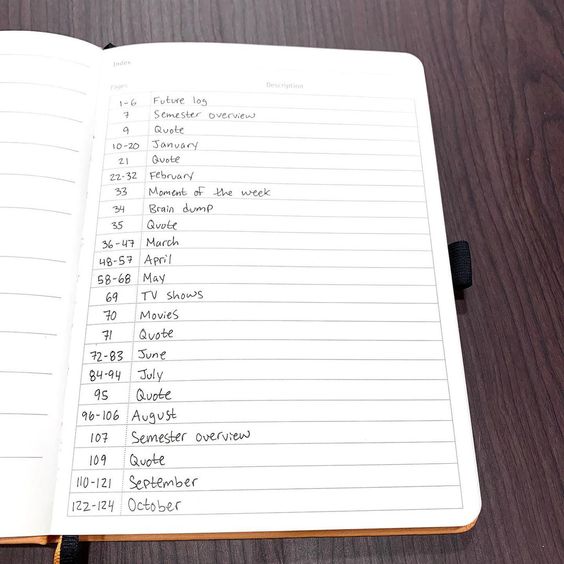 Index
Pages Description
1-6 Future log
7 Semester overview
9 Quote
10-20 January
21 Quote
22-32 February
33 Moment of the week
34 Brain dump
35 Quote
36-47 March
48-57 April
58-68 May
69 TV shows
70 Movies
71 Quote
72-83 June
84-94 July
95 Quote
96-106 August
107 Semester overview
109 Quote
110-121 September
122-124 October